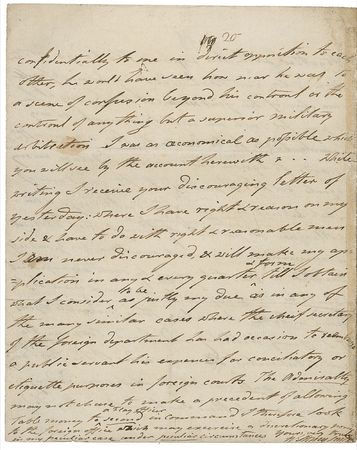 20
confidentially to me in direct opposition to each
other, he would have seen how near he was to
a scene of confusion beyond his controul or the
controul of anything but a superior military
arbitration I was as œconomical as possible which
you will see by the account herewith & .. While
writing I receive your discouraging letter of
yesterday. where I have right & reason on my
side & have to do with right & reasonable men
I am never discouraged, & will make my ap=
form
=plication in any & every quarter till I obtain
to be
what I consider, as justly my due, as in any of
the many similar cases where the chief secretary
of the foreign department has had occasion to
a public servant his expences for conciliatory or
etiquette purposes in foreign courts. The Admiralty
may not chuse to make a precedent of allowing
a Flag Officer
Table money to second in Command I therefore look
to the foreign Office which may exercise a discretionary power
in my peculiar case under peculiar circumstances Yours, my